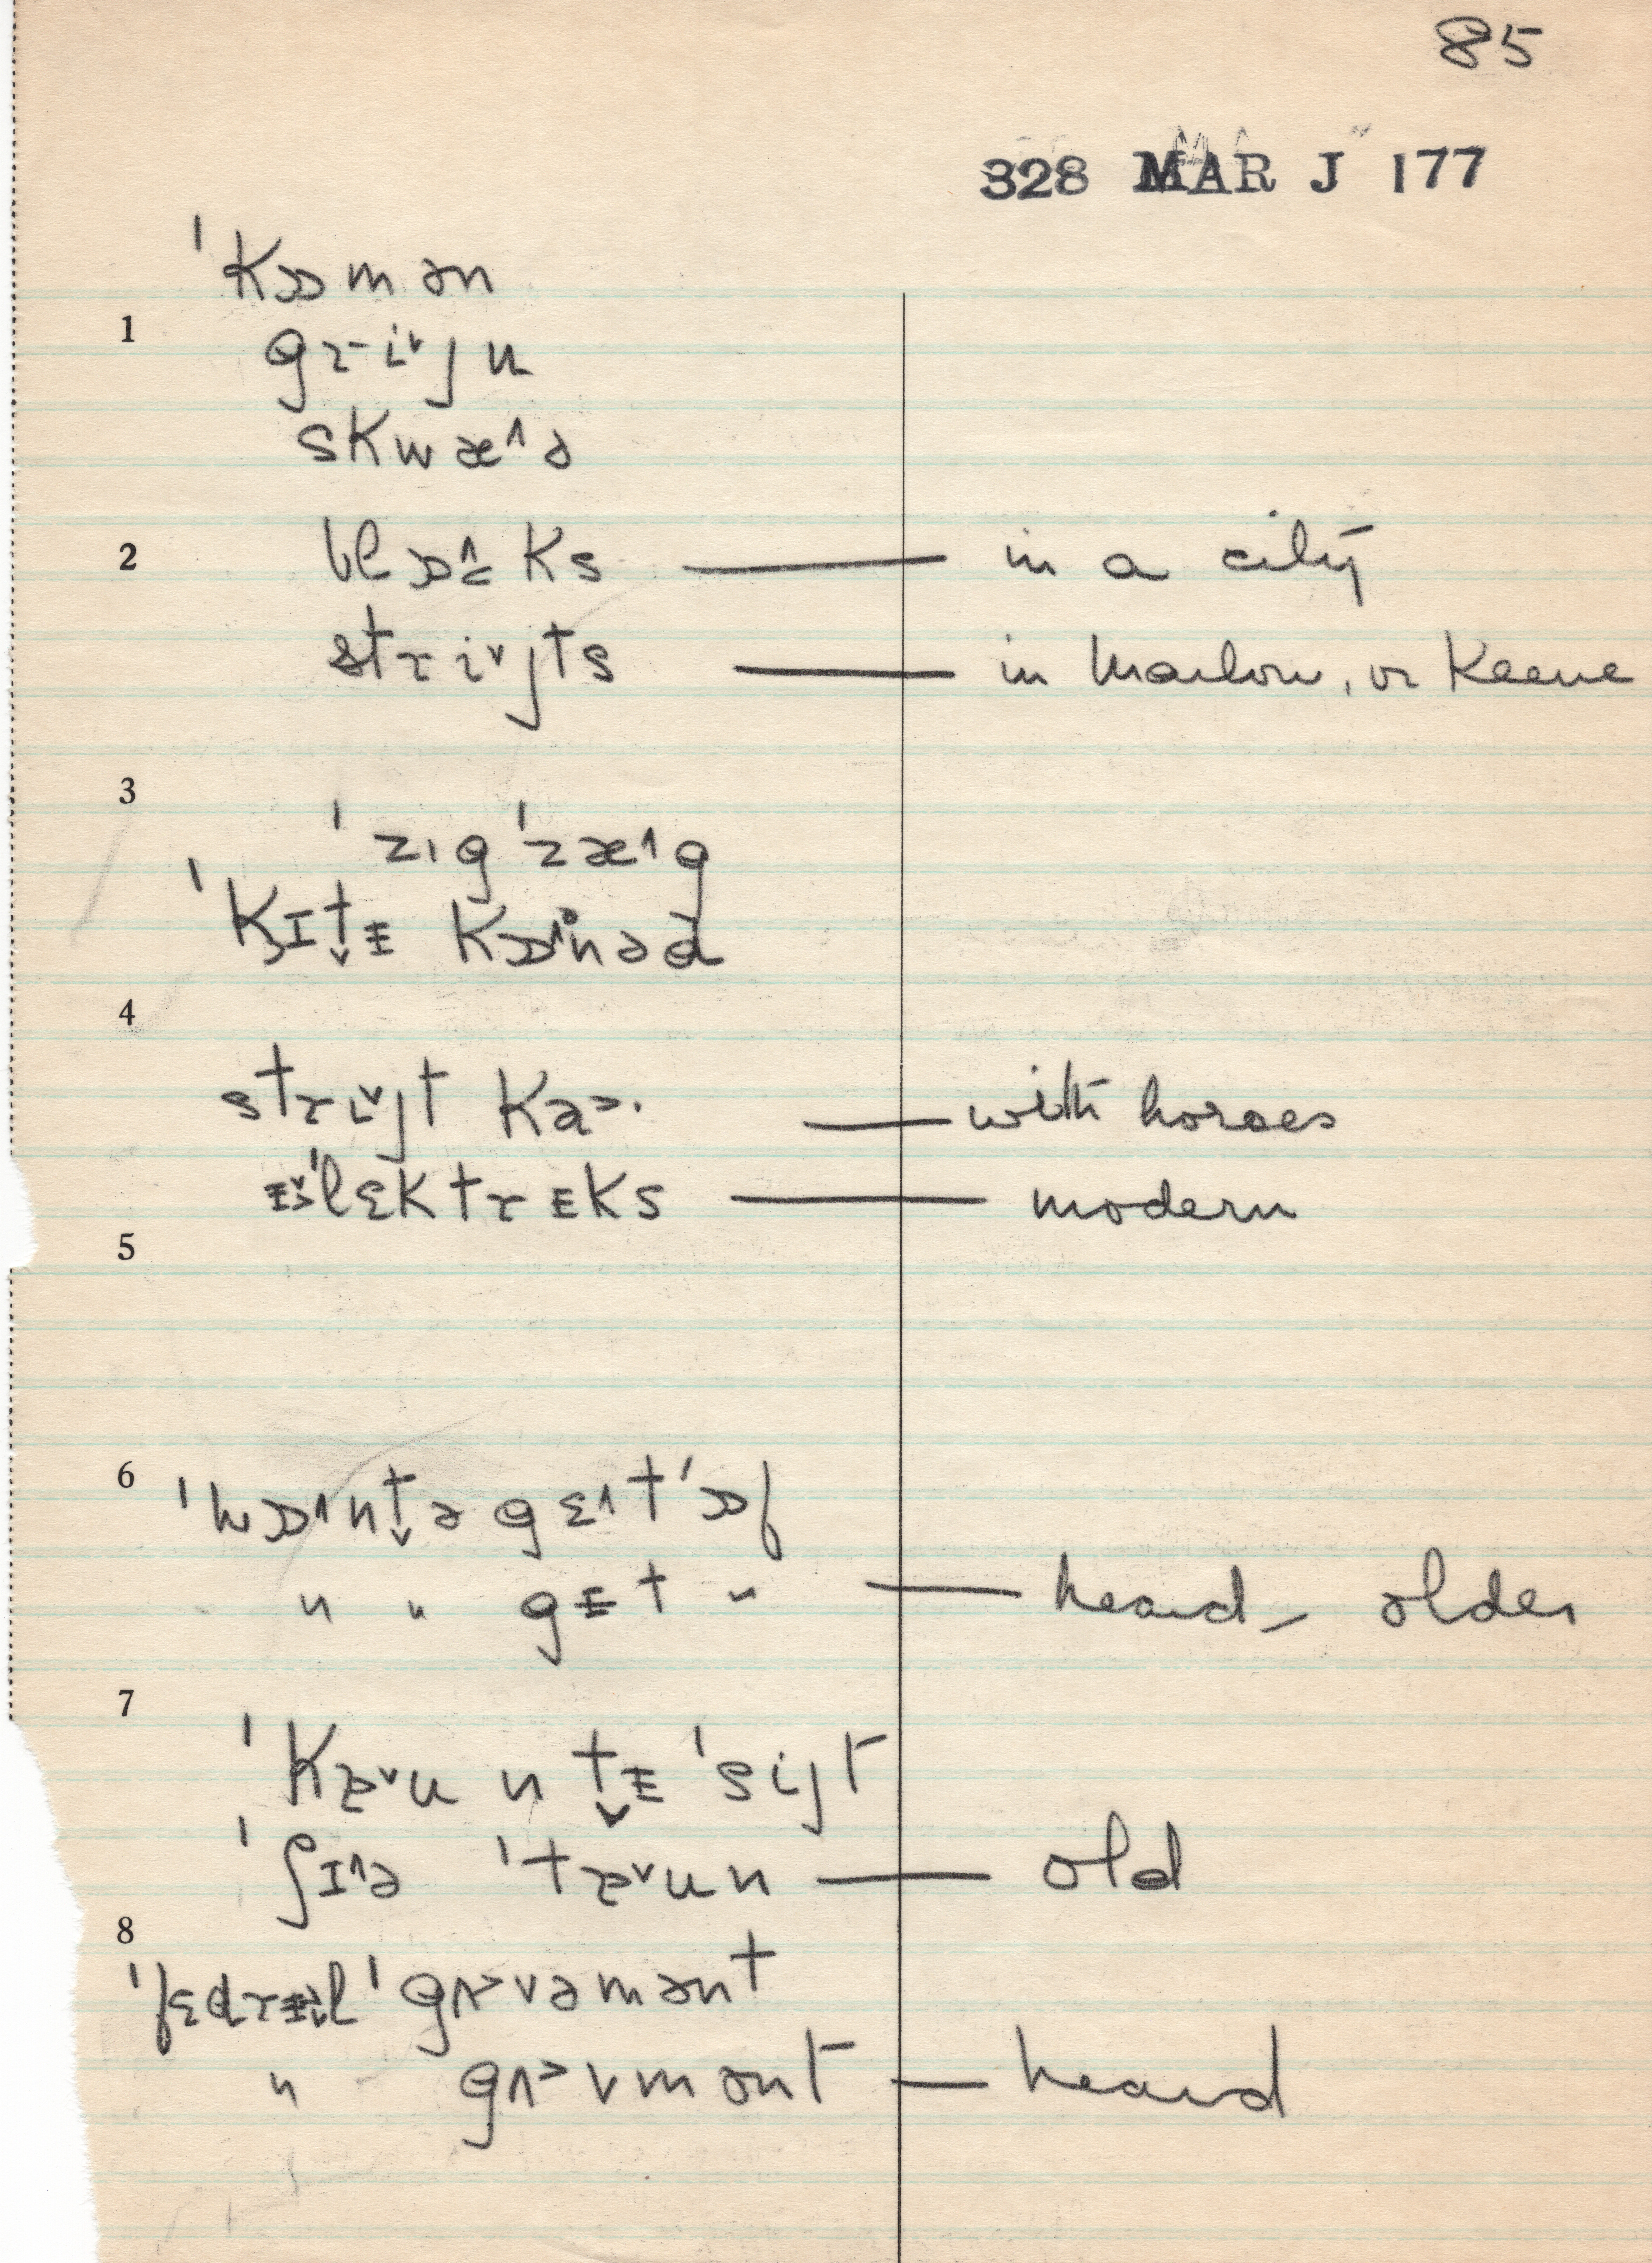 85
328 MAR J 177
ˈkɒmən
1
gɹ-i˅jn
skwæ˄ə
2 blɒ˄ks — in a city
stɹi˅jts — in Marlow, or Keene
3
ˈzɪgˈzæ˄g
ˈkɪt̬ᵻ kɒ˄nəd
4
stɹi˅jt ka>· — with horses
ᵻ˅ˈlɛktɹᵻks — modern
5
6
ˈwɒ˄nt̬ə gɛ˄tˈɒf
" " gᵻt " — heard – older
7
ˈkɐ˅u n t̬ᵻ ˈsijt
ˈʃɪ˄ə ˈtɐ˅un — old
8
ˈgʌ>vəmənt
" gʌ>vmənt — heard